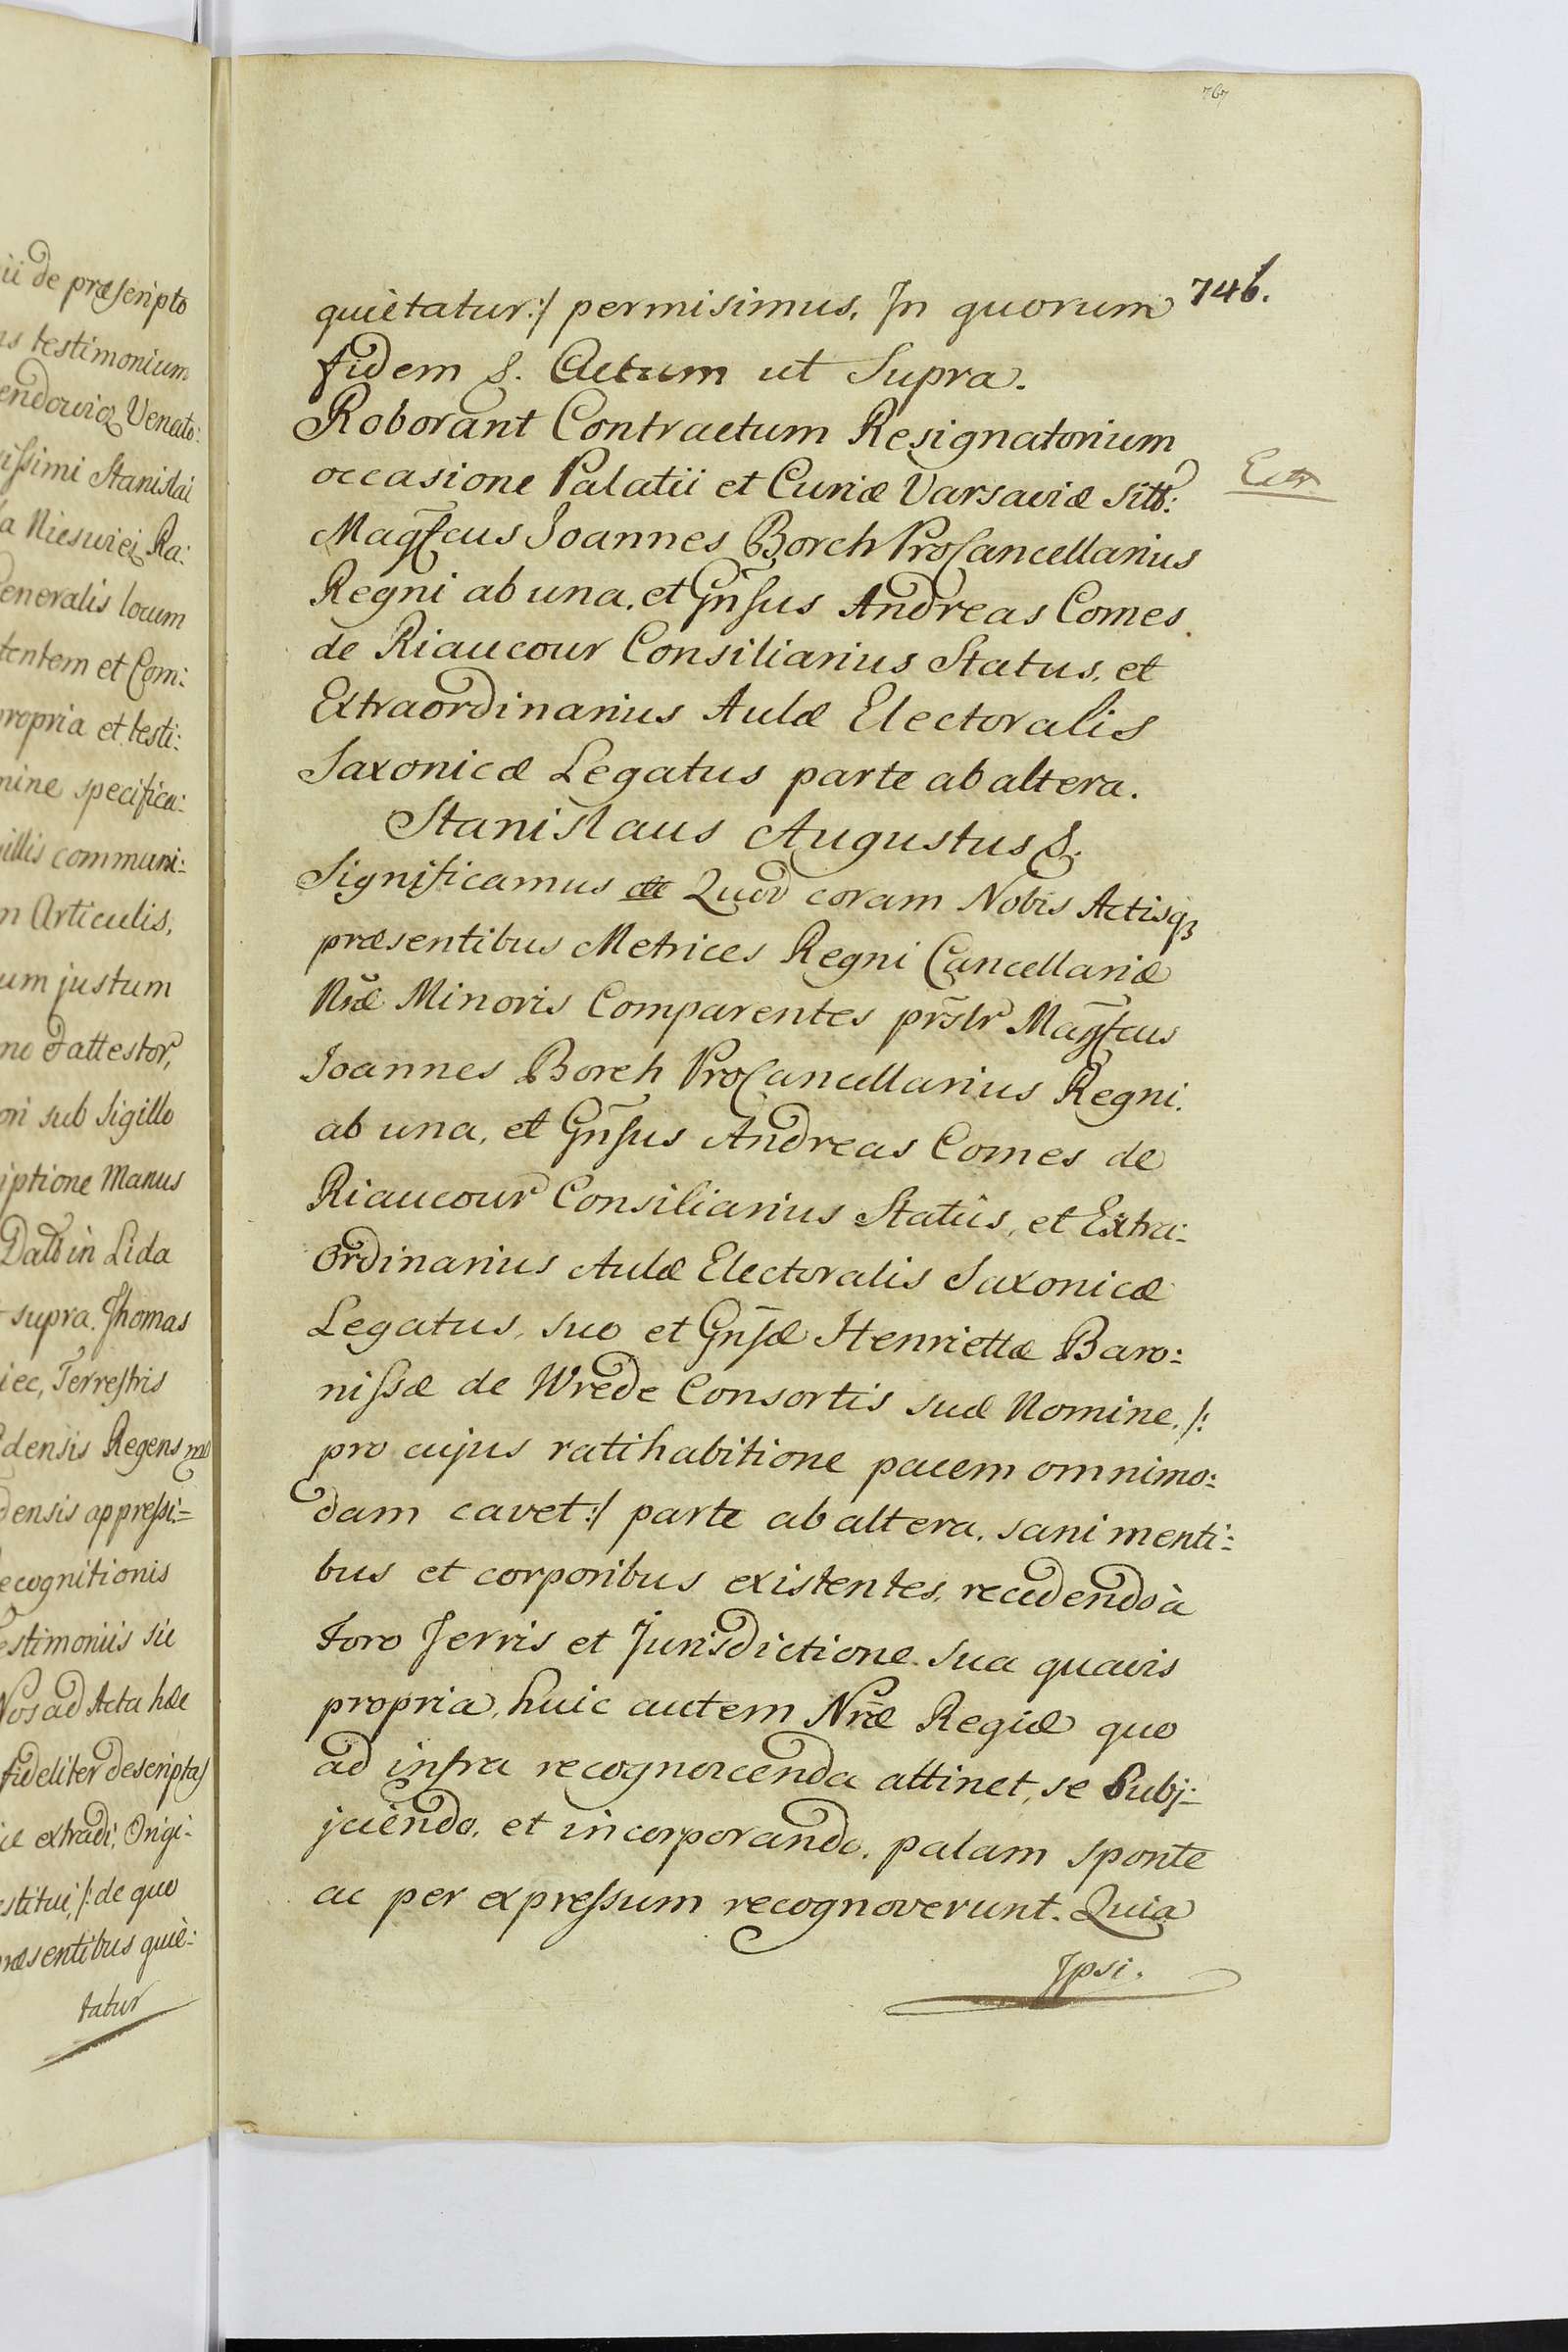 767
746.
quiètatur:/ permisimus. In quorum
fidem &. Actum ut Supra.
Roborant Contractum Resignatorium
occasione Palatii et Curiæ Varsaviæ sitt:
Magfcus Joannes Borch ProCancellarius
Regni ab una, et Gnsus Andreas Comes
de Riaucour Consiliarius Status, et
Extraordinarius Aulæ Electoralis
Saxonicæ Legatus parte ab altera.
Stanislaus Augustus &.
Significamus Quod coram Nobis Actisq3
præsentibus Metrices Regni Cancellariæ
Nræ Minoris Comparentes prslr Magfcus
Joannes Borch ProCancellarius Regni.
ab una, et Gnsus Andreas Comes de
Riaucour Consiliarius Statûs, et Extra:
Ordinarius Aulæ Electoralis Saxonicæ
Legatus, suo et Gnsæ Henriettæ Baro:
nissæ de Wrede Consortis suæ Nomine. /:
pro cujus ratihabitione pacem omnimo:
dam cavet:/ parte ab altera, sani menti:
bus et corporibus existentes, recedendo à
Foro Terris et Jurisdictione sua quavis
propria, huic autem Nræ Regiæ quo
ad infra recognorcenda attinet, se Subj:
jciendo, et incorporando, palam sponte
ac per expressum recognoverunt. Quia
Ipsi.
ii de præscripto
as testimonium
endowicz Venato:
issimi Stanislai
Ra:
eneralis locum
tentem et Com:
propria et testi:
mine specifica:
illis communi:
n Articulis,
um justum
no & attestor,
ori sub Sigillo
iptione Manus
Datt in Lida
supra. Thomas
iec, Terrestris
densis Regens
densis appressi:
ecognitionis
estimoniis sic
Nos ad Acta hæc
fideliter descriptas
extradi, Origi:
estitui, /: de quo
præsentibus quiè:
tatur